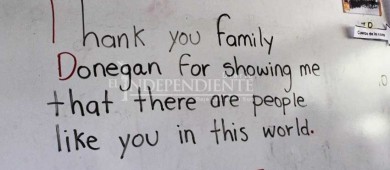 Thank you Family
Donegan for showing me
that there are people
like you in this world.
EL INDEPENDIENTE